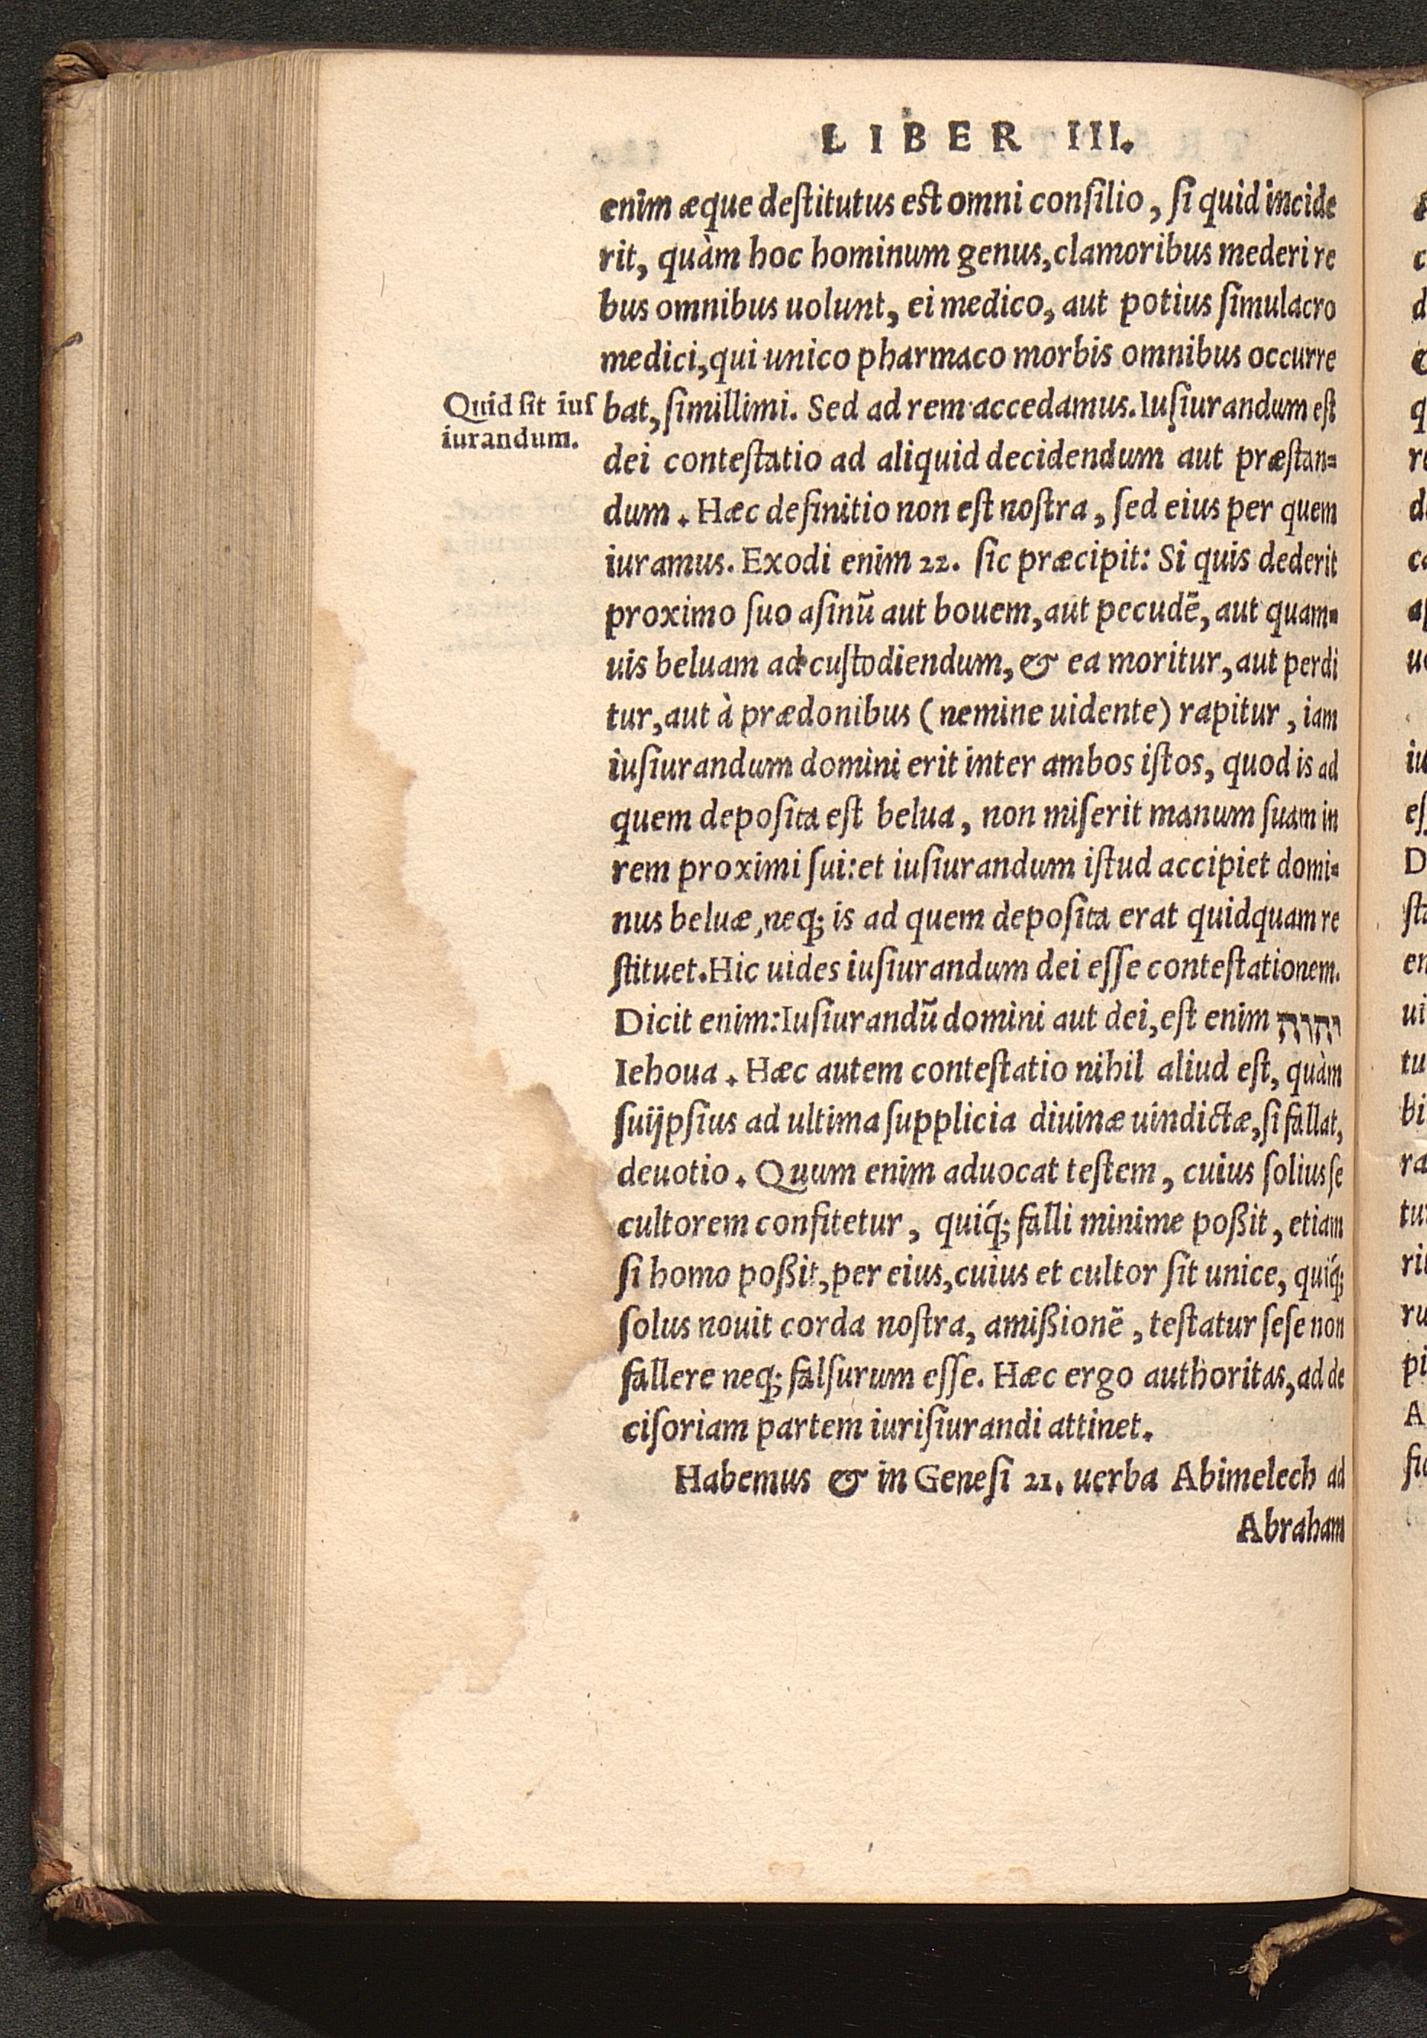 LIBER III.
enim æque deſtitutus eſt omni conſilio, ſi quid incide
rit, quàm hoc hominum genus, clamoribus mederi re
bus omnibus uolunt, ei medico, aut potius ſimulacro
medici, qui unico pharmaco morbis omnibus occurre
Quid ſit iuſ
iurandum.
bat, ſimillimi. Sed ad rem accedamus. Iuſiurandum eſt
dei conteſtatio ad aliquid decidendum aut præſtan=
dum. Hæc definitio non eſt noſtra, ſed eius per quem
iuramus. Exodi enim 22. ſic præcipit: Si quis dederit
proximo ſuo aſinũ aut bouem, aut pecudẽ, aut quam=
uis beluam ad cuſtodiendum, & ea moritur, aut perdi
tur, aut à prædonibus (nemine uidente) rapitur, iam
iuſiurandum domini erit inter ambos iſtos, quod is ad
quem depoſita eſt belua, non miſerit manum ſuam in
rem proximi ſui: et iuſiurandum iſtud accipiet domi=
nus beluæ, neq; is ad quem depoſita erat quidquam re
ſtituet. Hic uides iuſiurandum dei eſſe conteſtationem.
Dicit enim: Iuſiurandũ domini aut dei, eſt enim יהוה
Iehoua. Hæc autem conteſtatio nihil aliud eſt, quàm
ſuijpſius ad ultima ſupplicia diuinæ uindictæ, ſi fallat,
deuotio. Quum enim aduocat teſtem, cuius ſolius ſe
cultorem confitetur, quiq́; falli minime poßit, etiam
ſi homo poßit, per eius, cuius et cultor ſit unice, quiq́;
ſolus nouit corda noſtra, amißionẽ, teſtatur ſeſe non
fallere neq; falſurum eſſe. Hæc ergo authoritas, ad de
ciſoriam partem iuriſiurandi attinet.
Habemus & in Geneſi 21. uerba Abimelech ad
Abraham